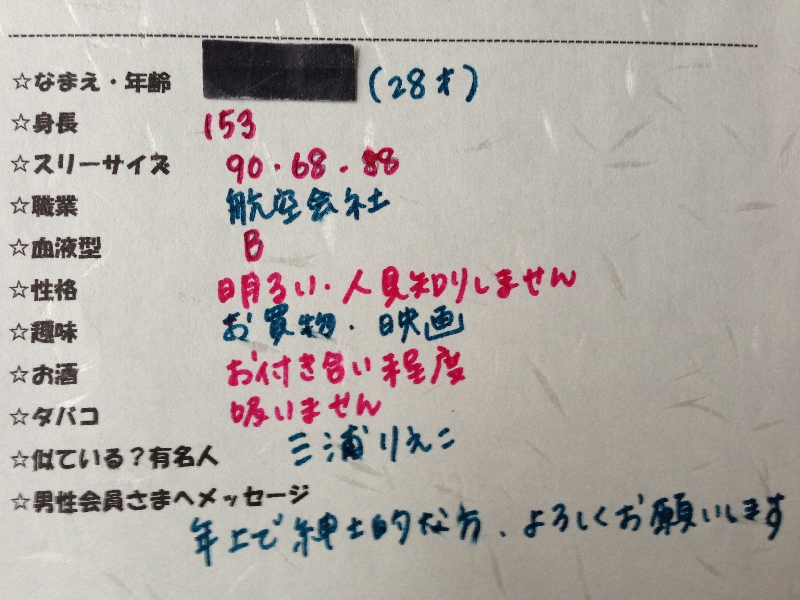 ☆なまえ・年齢 (28才)
☆身長 153
☆スリーサイズ 90・68・88
☆職業 航空会社
☆血液型 B
☆性格 明るい・人見知りしません
☆趣味 お買物・映画
☆お酒 お付き合い程度
☆タバコ 吸いません
☆似ている?有名人 三浦りえこ
☆男性会員さまへメッセージ
年上で紳士的な方、よろしくお願いします